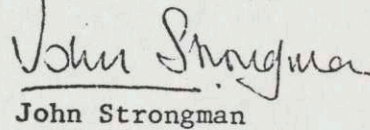 John Strongman
John Strongman